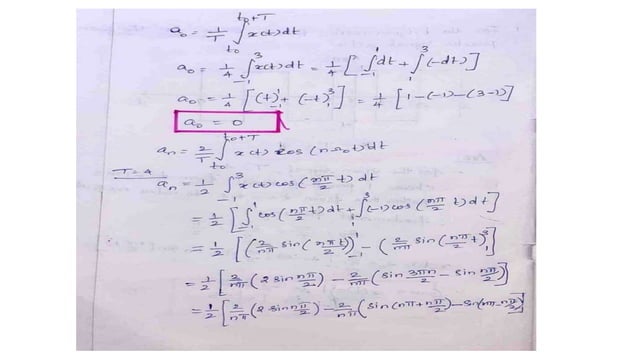 a₀ = 1/T ∫_{t₀}^{t₀+T} x(t) dt
a₀ = 1/4 ∫_{-1}^{3} x(t) dt = 1/4 [∫_{-1}^{1} dt + ∫_{1}^{3} (-dt)]
a₀ = 1/4 [(t)_{-1}^{1} + (-t)_{1}^{3}] = 1/4 [1-(-1)-(3-1)]
a₀ = 0
aₙ = 2/T ∫_{t₀}^{t₀+T} x(t) cos(nω₀t) dt
T=4 aₙ = 1/2 ∫_{-1}^{3} x(t) cos(nπ/2 t) dt
= 1/2 [∫_{-1}^{1} cos(nπ/2 t) dt + ∫_{1}^{3} (-1) cos(nπ/2 t) dt]
= 1/2 [(2/nπ sin(nπ/2 t))_{-1}^{1} - (2/nπ sin(nπ/2 t))_{1}^{3}]
= 1/2 [2/nπ (2 sin nπ/2) - 2/nπ (sin 3πn/2 - sin nπ/2)]
= 1/2 [2/nπ (2 sin nπ/2) - 2/nπ (sin(nπ + nπ/2) - sin(nπ - nπ/2)]